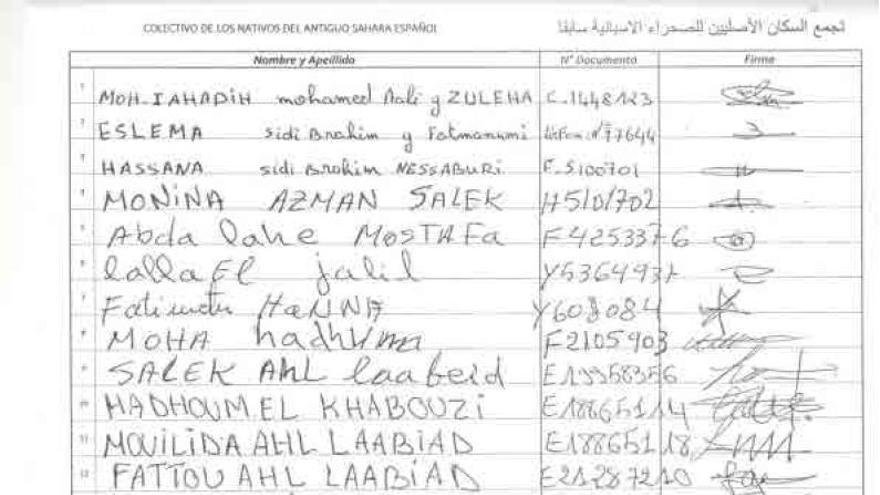 COLECTIVO DE LOS NATIVOS DEL ANTIGUO SAHARA ESPAÑOL تجمع السكان الأصليين للصحراء الاسبانية سابقا
Nombre y Apeillido Nº Documento Firma
1 MOH-IAHADIH mohamed Aali y ZULEHA C.1448123
2 ESLEMA sidi Brahim y Fatmanumi 77644
3 HASSANA sidi Brahim NESSABURI F.5100701
4 MONINA AZMAN SALEK H510/702
5 Abda lahe MOSTAFA F4253376
6 lalla El jalil Y5364937
7 HANNA Y608084
8 MOHA hadhuma F2105903
9 SALEK AHL laabeid E19958356
10 HADHOUM.EL KHABOUZI E18865114
11 MOUILIDA AHL LAABIAD E18865118
12 FATTOU AHL LAABIAD E21287210